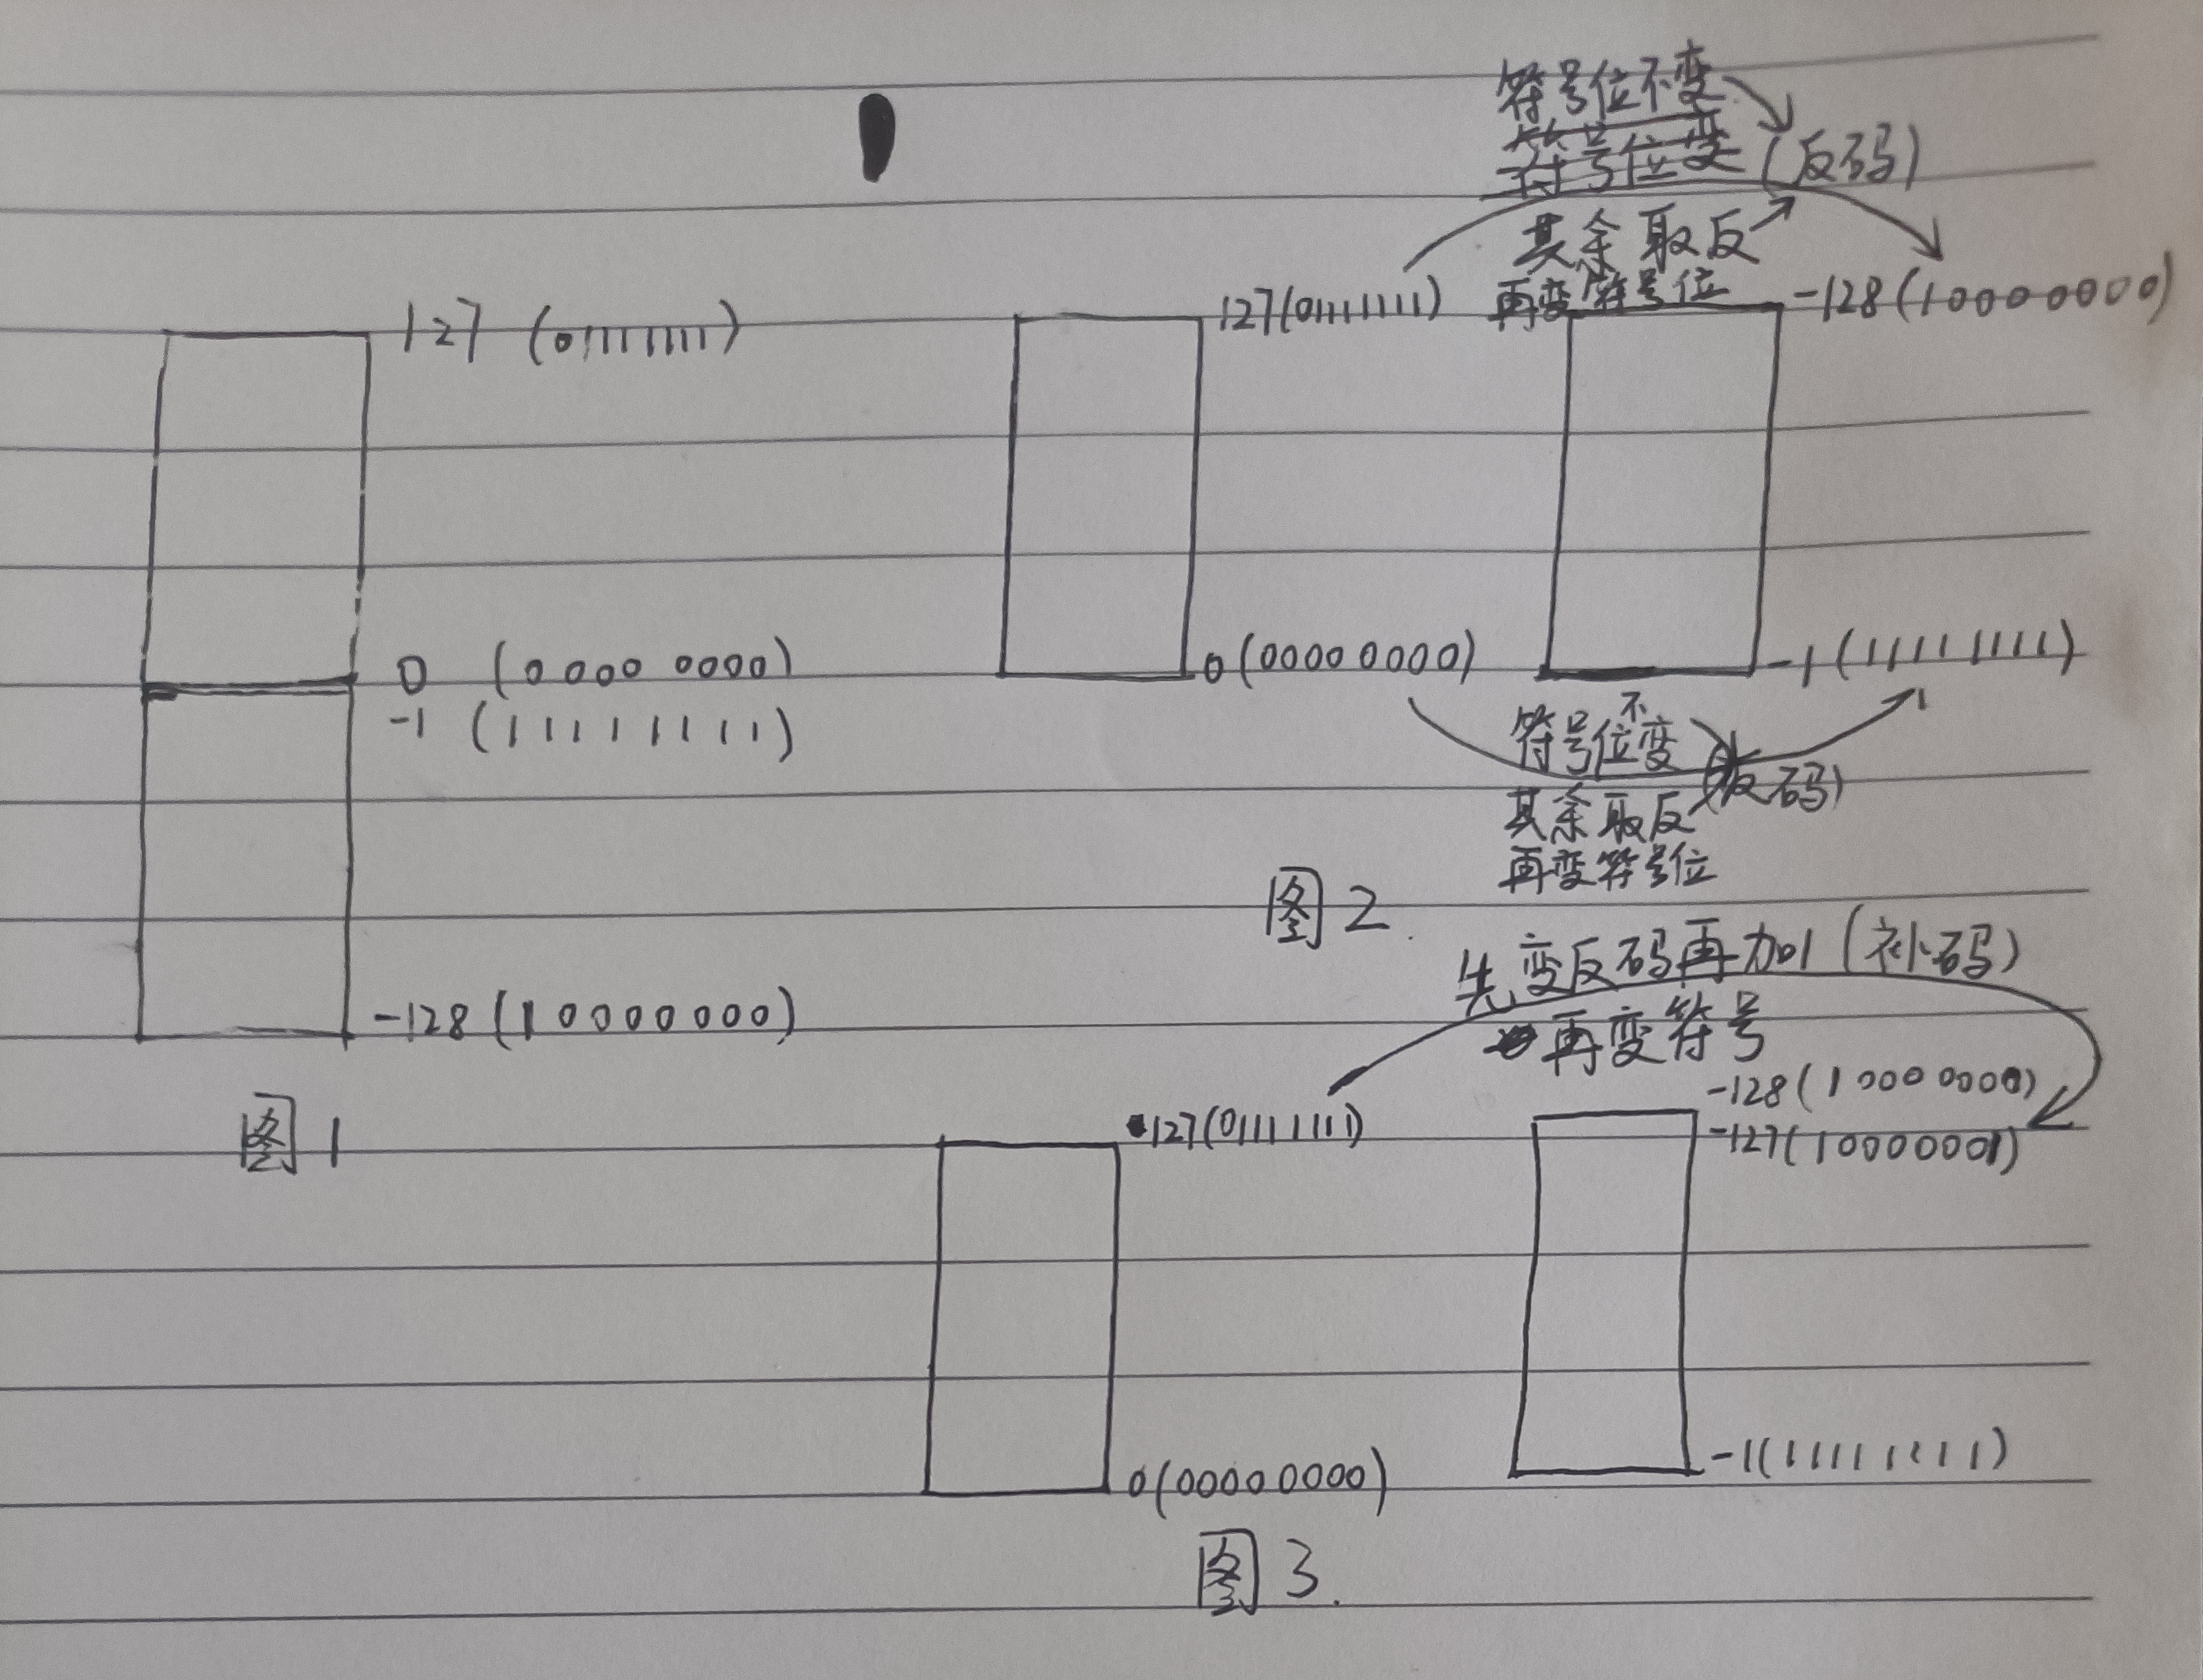 127 (01111111)
0 (0000 0000)
-1 (11111111)
-128 (10000000)
图1
符号位不变
符号位变 (反码)
其余取反
再变符号位
127(01111111)
-128(10000000)
0(00000000)
-1(11111111)
符号位不变
其余取反 (反码)
再变符号位
图2.
先变反码再加1(补码)
再变符号
-128(1000 0000)
127(01111111)
-127(10000001)
0(00000000)
-1(11111111)
图3.